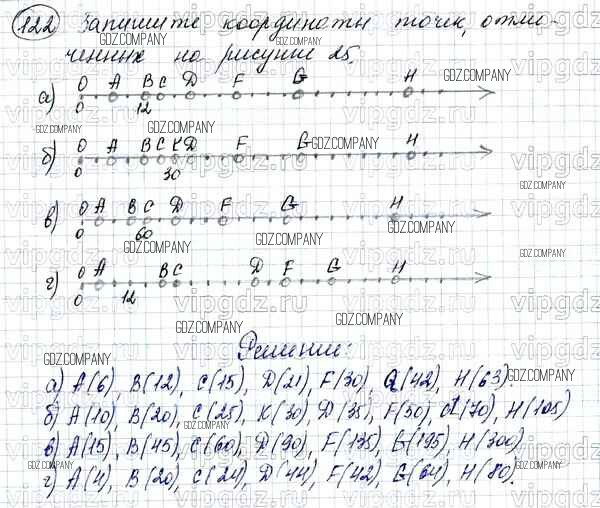 122 Запишите координаты точек, отме-
ченных на рисунке 25.
GDZ.COMPANY
а) O A B C D F G H
0 12
б) O A B C K D F G H
0 30
в) O A B C D F G H
0 60
г) O A B C D F G H
0 12
Решение:
а) A(6), B(12), C(15), D(21), F(30), G(42), H(63)
б) A(10), B(20), C(25), K(30), D(35), F(50), G(70), H(105)
в) A(15), B(45), C(60), D(90), F(135), G(195), H(300)
г) A(4), B(20), C(24), D(44), F(42), G(64), H(80).
vipgdz.ru